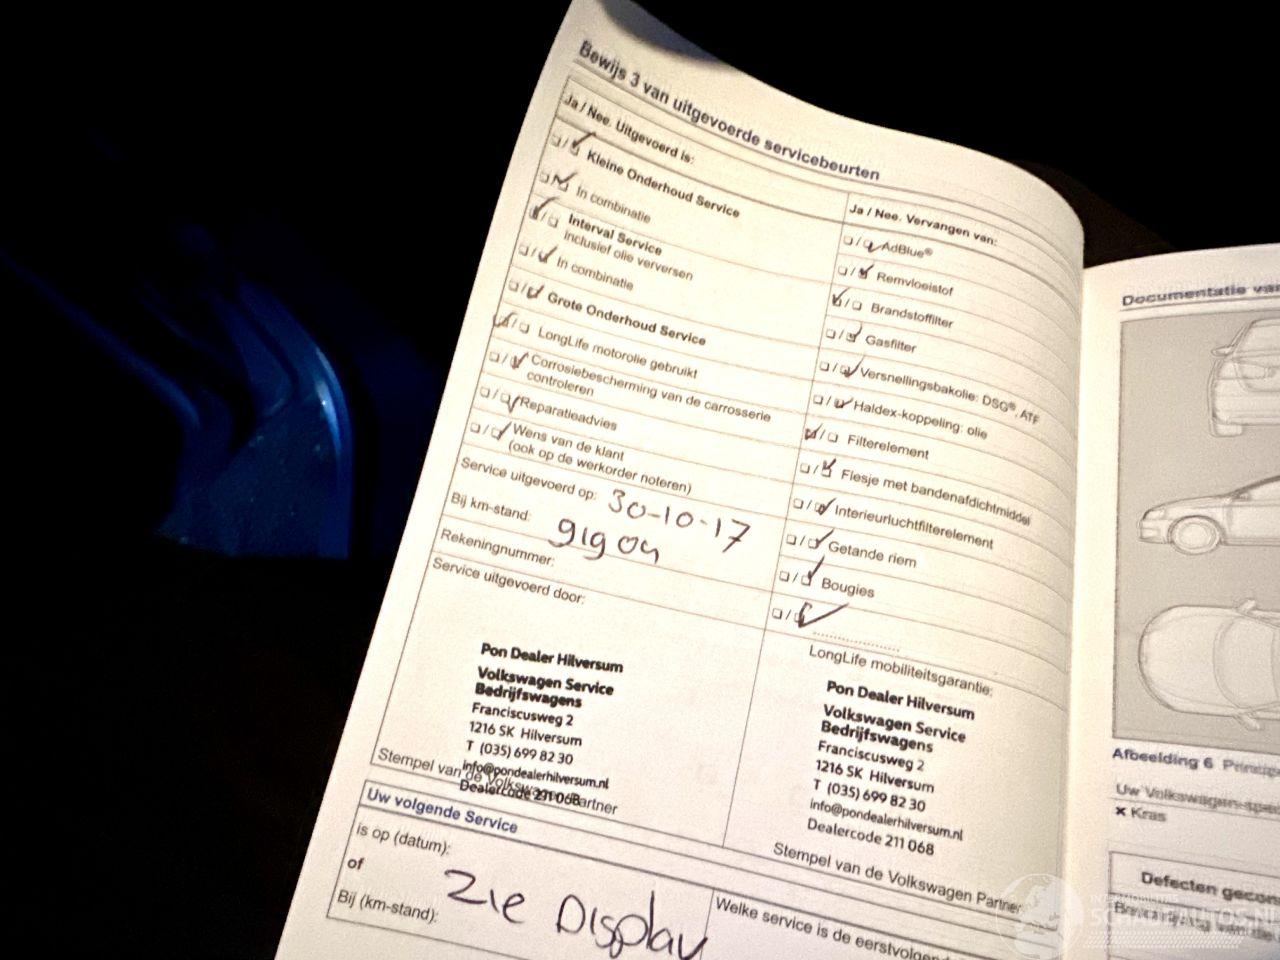 Bewijs 3 van uitgevoerde servicebeurten
Ja / Nee. Uitgevoerd is:
Kleine Onderhoud Service
In combinatie
Interval Service
inclusief olie verversen
In combinatie
Grote Onderhoud Service
LongLife motorolie gebruikt
Corrosiebescherming van de carrosserie
controleren
Reparatieadvies
Wens van de klant
(ook op de werkorder noteren)
Service uitgevoerd op: 30-10-17
Bij km-stand: 91904
Rekeningnummer:
Service uitgevoerd door:
Pon Dealer Hilversum
Volkswagen Service
Bedrijfswagens
Franciscusweg 2
1216 SK Hilversum
T (035) 699 82 30
info@pondealerhilversum.nl
Dealercode 211 068
Stempel van de Volkswagen Partner
Ja / Nee. Vervangen van:
AdBlue®
Remvloeistof
Brandstoffilter
Gasfilter
Versnellingsbakolie: DSG®, ATF
Haldex-koppeling: olie
Filterelement
Flesje met bandenafdichtmiddel
Interieurluchtfilterelement
Getande riem
Bougies
LongLife mobiliteitsgarantie:
Pon Dealer Hilversum
Volkswagen Service
Bedrijfswagens
Franciscusweg 2
1216 SK Hilversum
T (035) 699 82 30
info@pondealerhilversum.nl
Dealercode 211 068
Stempel van de Volkswagen Partner
Uw volgende Service
is op (datum):
of
Bij (km-stand):
Zie Display
Welke service is de eerstvolgende
Documentatie van
Afbeelding 6
Uw Volkswagen-
× Kras
Defecten gecon
SCHADEAUTOS.NL